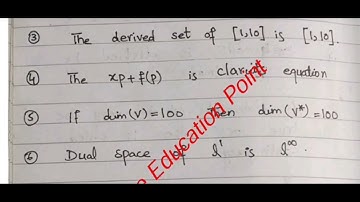 ③ The derived set of [1,10] is [1,10].
④ The xp+f(p) is clariut equation
⑤ If dim(V)=100 Then dim(V*)=100
⑥ Dual space of l¹ is l∞.
Education Point